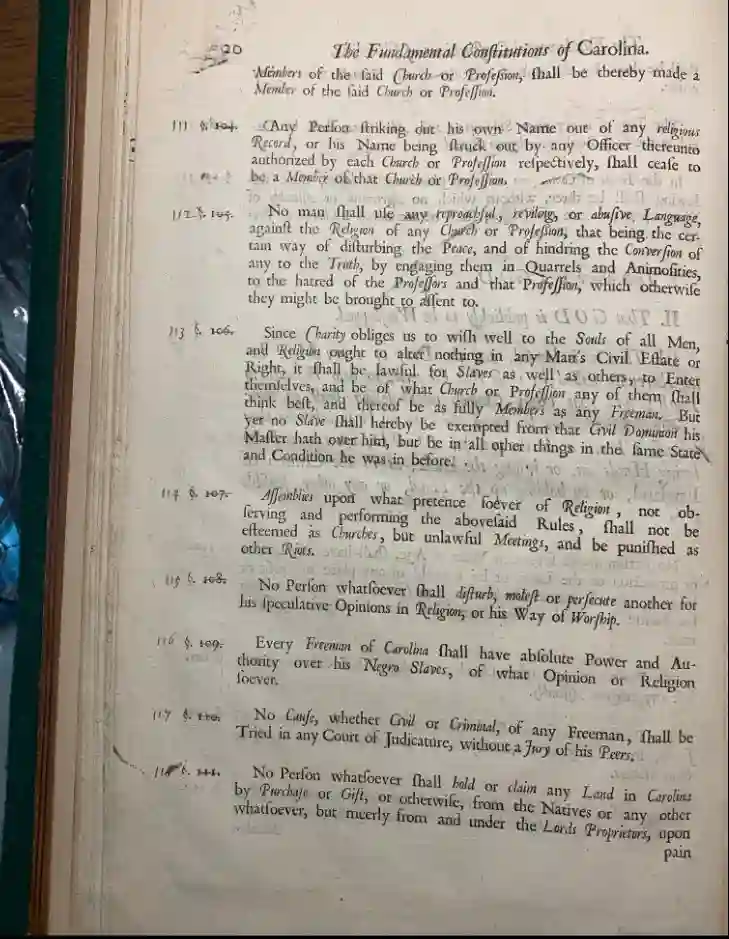 20 The Fundamental Constitutions of Carolina.
Members of the ſaid Church or Profeſſion, ſhall be thereby made a
Member of the ſaid Church or Profeſſion.
111 §. 104. Any Perſon ſtriking out his own Name out of any religious
Record, or his Name being ſtruck out by any Officer thereunto
authorized by each Church or Profeſſion reſpectively, ſhall ceaſe to
be a Member of that Church or Profeſſion.
112 §. 105. No man ſhall uſe any reproachful, reviling, or abuſive Language,
againſt the Religion of any Church or Profeſſion, that being the cer-
tain way of diſturbing the Peace, and of hindring the Converſion of
any to the Truth, by engaging them in Quarrels and Animoſities,
to the hatred of the Profeſſors and that Profeſſion, which otherwiſe
they might be brought to aſſent to.
113 §. 106. Since Charity obliges us to wiſh well to the Souls of all Men,
and Religion ought to alter nothing in any Man's Civil Eſtate or
Right, it ſhall be lawful for Slaves as well as others, to Enter
themſelves, and be of what Church or Profeſſion any of them ſhall
think beſt, and thereof be as fully Members as any Freeman. But
yet no Slave ſhall hereby be exempted from that Civil Dominion his
Maſter hath over him, but be in all other things in the ſame State
and Condition he was in before.
114 §. 107. Aſſemblies upon what pretence ſoever of Religion, not ob-
ſerving and performing the aboveſaid Rules, ſhall not be
eſteemed as Churches, but unlawful Meetings, and be puniſhed as
other Riots.
115 §. 108. No Perſon whatſoever ſhall diſturb, moleſt or perſecute another for
his ſpeculative Opinions in Religion, or his Way of Worſhip.
116 §. 109. Every Freeman of Carolina ſhall have abſolute Power and Au-
thority over his Negro Slaves, of what Opinion or Religion
ſoever.
117 §. 110. No Cauſe, whether Civil or Criminal, of any Freeman, ſhall be
Tried in any Court of Judicature, without a Jury of his Peers.
§. 111. No Perſon whatſoever ſhall hold or claim any Land in Carolina
by Purchaſe or Gift, or otherwiſe, from the Natives or any other
whatſoever, but meerly from and under the Lords Proprietors, upon
pain